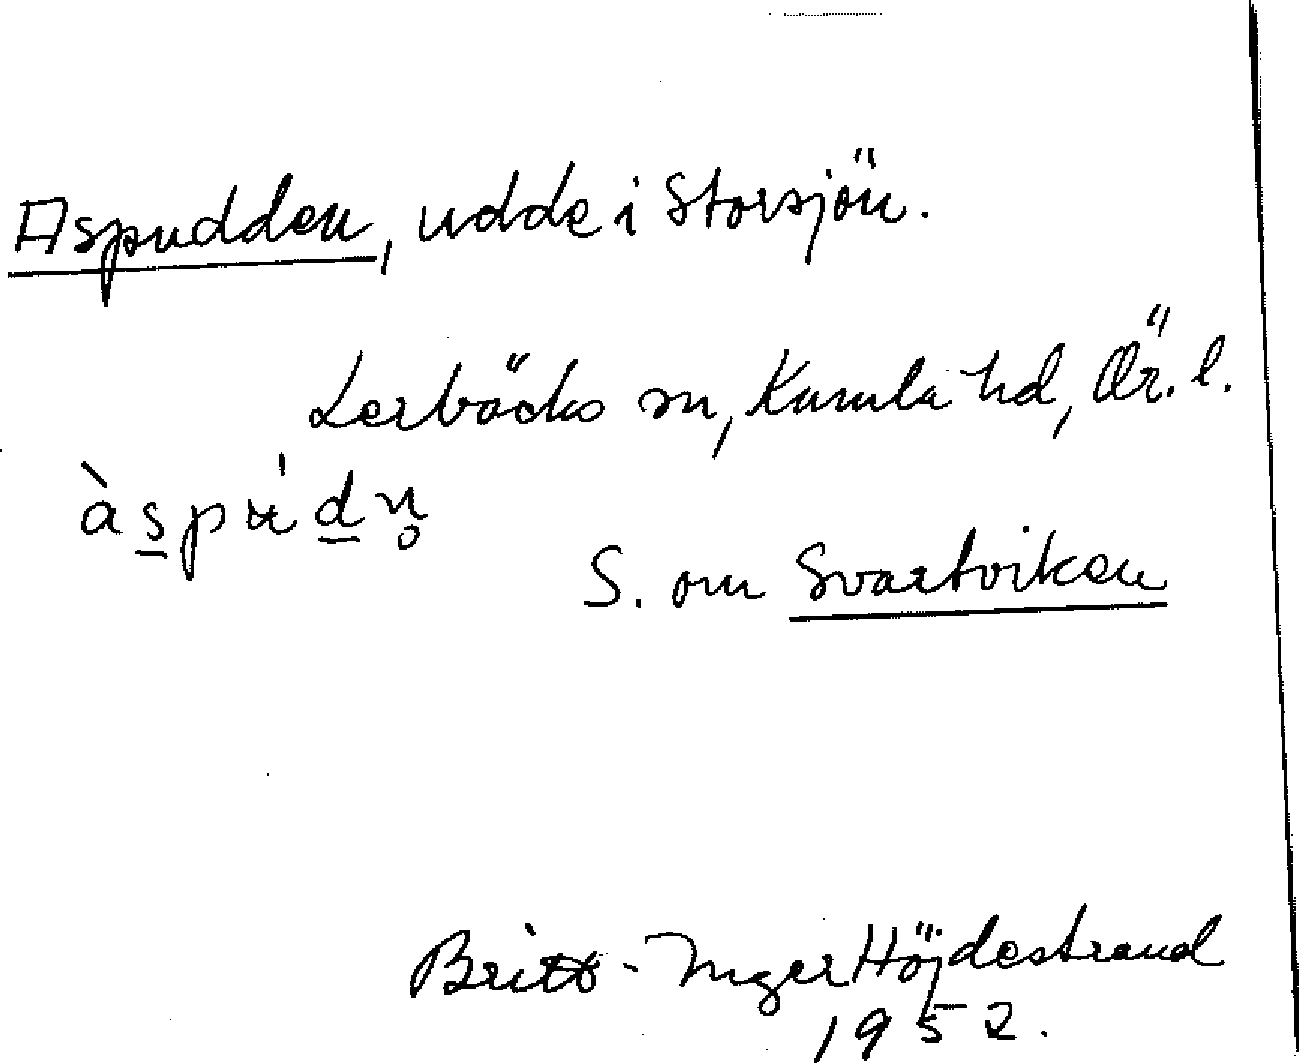 Aspudden, udde i Storsjön.
Lerbäcks sn, Kumla hd, Ör. l.
às̲pʉ́d̲n̥
S. om Svartviken
Britt-Inger Höjdestrand
1952.